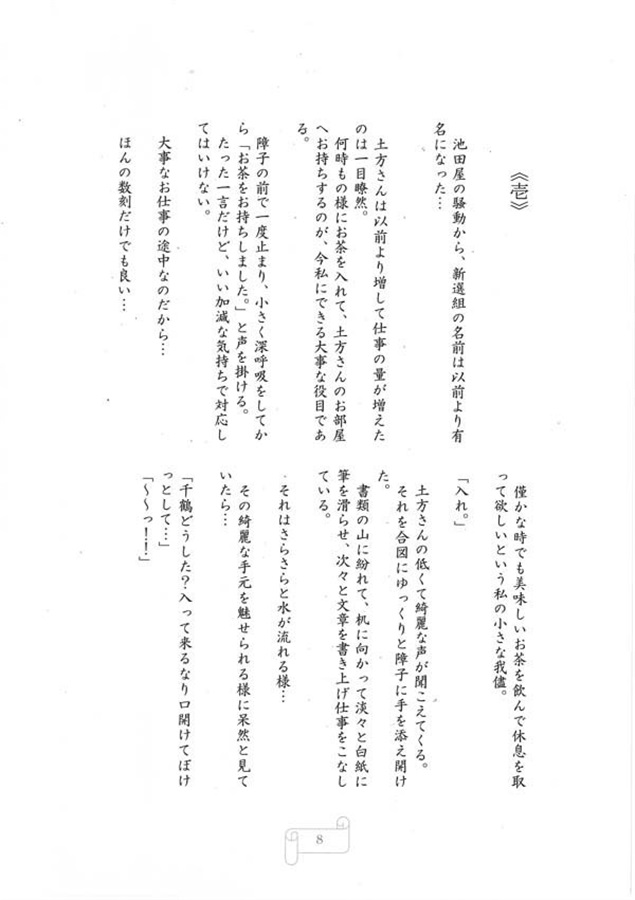 《壱》
池田屋の騒動から、新選組の名前は以前より有
名になった…
土方さんは以前より増して仕事の量が増えた
のは一目瞭然。
何時もの様にお茶を入れて、土方さんのお部屋
へお持ちするのが、今私にできる大事な役目であ
る。
障子の前で一度止まり、小さく深呼吸をしてか
ら「お茶をお持ちしました。」と声を掛ける。
たった一言だけど、いい加減な気持ちで対応し
てはいけない。
大事なお仕事の途中なのだから…
ほんの数刻だけでも良い…
僅かな時でも美味しいお茶を飲んで休息を取
って欲しいという私の小さな我儘。
「入れ。」
土方さんの低くて綺麗な声が聞こえてくる。
それを合図にゆっくりと障子に手を添え開け
た。
書類の山に紛れて、机に向かって淡々と白紙に
筆を滑らせ、次々と文章を書き上げ仕事をこなし
ている。
それはさらさらと水が流れる様…
その綺麗な手元を魅せられる様に呆然と見て
いたら…
「千鶴どうした？入って来るなり口開けてぼけ
っとして…」
「～～っ！！」
8